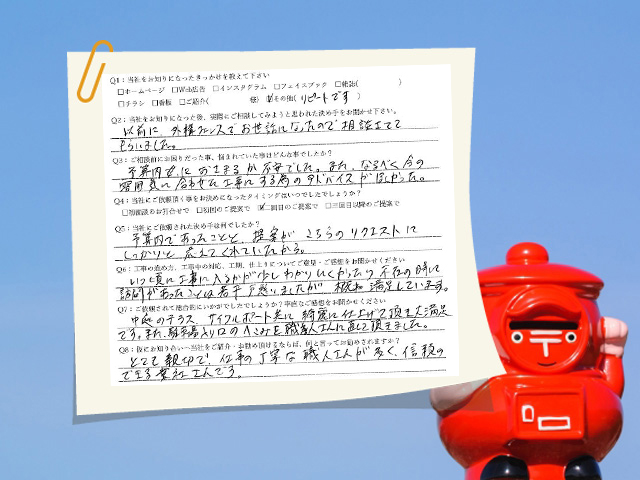 Q1：当社をお知りになったきっかけを教えて下さい
□ホームページ □Web広告 □インスタグラム □フェイスブック □雑誌( )
□チラシ □看板 □ご紹介( 様) ☑その他( リピートです )
Q2：当社をお知りになった後、実際にご相談してみようと思われた決め手をお聞かせ下さい。
以前に、外構フェンスでお世話になったので相談させて
もらいました。
Q3：ご相談前にお困りだった事、悩まれていた事はどんな事でしたか？
予算内でおさまるか不安でした。また、なるべく今の
雰囲気に合わせた工事にする為のアドバイスがほしかった。
Q4：当社にご依頼頂く事をお決めになったタイミングはいつでしたでしょうか？
□初面談のお打合せで □初回のご提案で ☑二回目のご提案で □三回目以降のご提案で
Q5：当社にご依頼された決め手は何でしたか？
予算内であったことと、提案がこちらのリクエストに
しっかりと応えてくれていたから。
Q6：工事の進め方、工事中の対応、工期、仕上りについてご意見・ご感想をお聞かせください
いつ頃に工事に入るかが少しわかりにくかったり不在の時に
訪問があったことは若干戸惑いましたが 概ね満足しています。
Q7：ご依頼されて総合的にいかがでしたでしょうか？率直なご感想をお聞かせください
中庭のテラス、サイクルポート共に綺麗に仕上げて頂き大満足
です。また、駐車場入り口の 職人さんに直して頂きました。
Q8：仮にお知り合いへ当社をご紹介・お勧め頂けるならば、何と言ってお勧めされますか？
とても親切で、仕事の丁寧な職人さんが多く、信頼の
できる業社さんです。